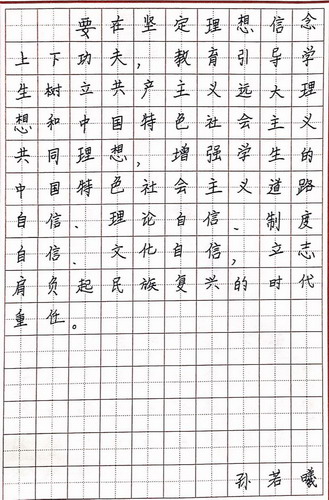 要在坚定理想信念
上下功夫，教育引导学
生树立共产主义远大理
想和中国特色社会主义
共同理想，增强学生的
中国特色社会主义道路
自信、理论自信、制度
自信、文化自信，立志
肩负起民族复兴的时代
重任。
孙若曦